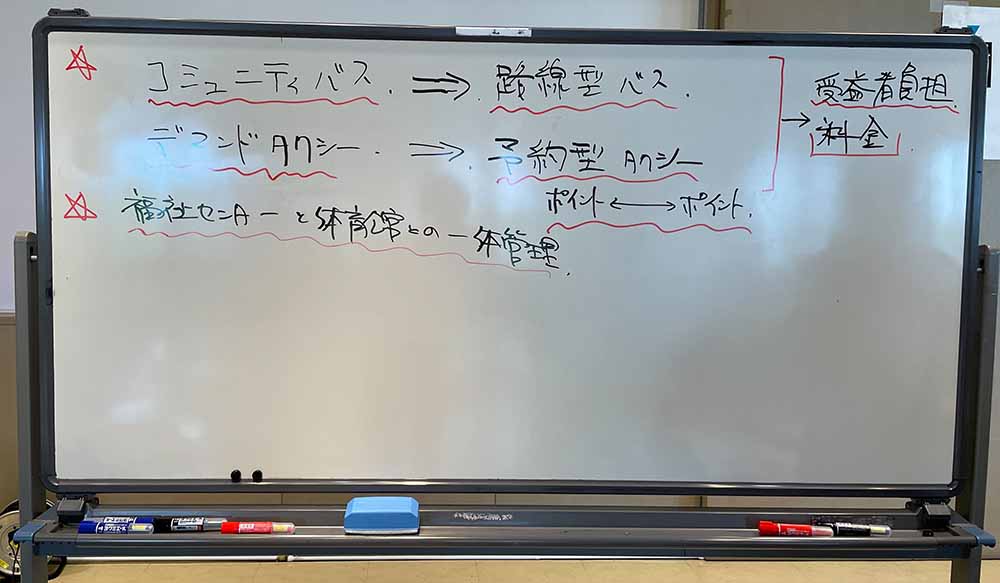 ☆ コミュニティバス. ⇒ 路線型バス.
デマンドタクシー. ⇒ 予約型タクシー
ポイント ←→ ポイント.
→ 受益者負担.
料金.
☆ 福祉センターと体育館との一体管理.